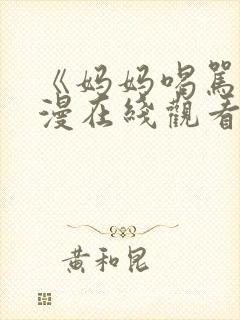 《妈妈喝罵
漫在綫觀看
黄和昆